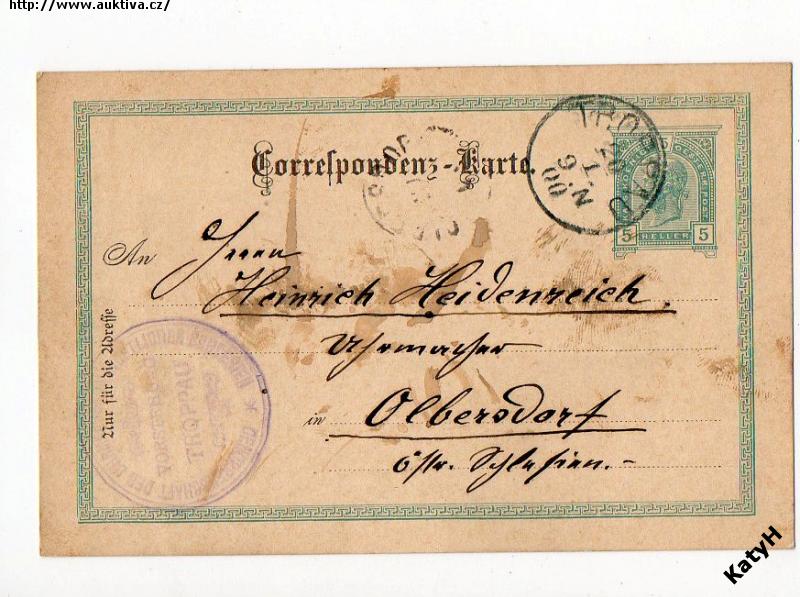 http://www.auktiva.cz/
Correspondenz-Karte.
TROPPAU
5 5
HELLER
An
Herrn
Heinrich Heidenreich.
Uhrmacher
in Olbersdorf
östr. Schlesien.-
Nur für die Adresse
TROPPAU
KatyH